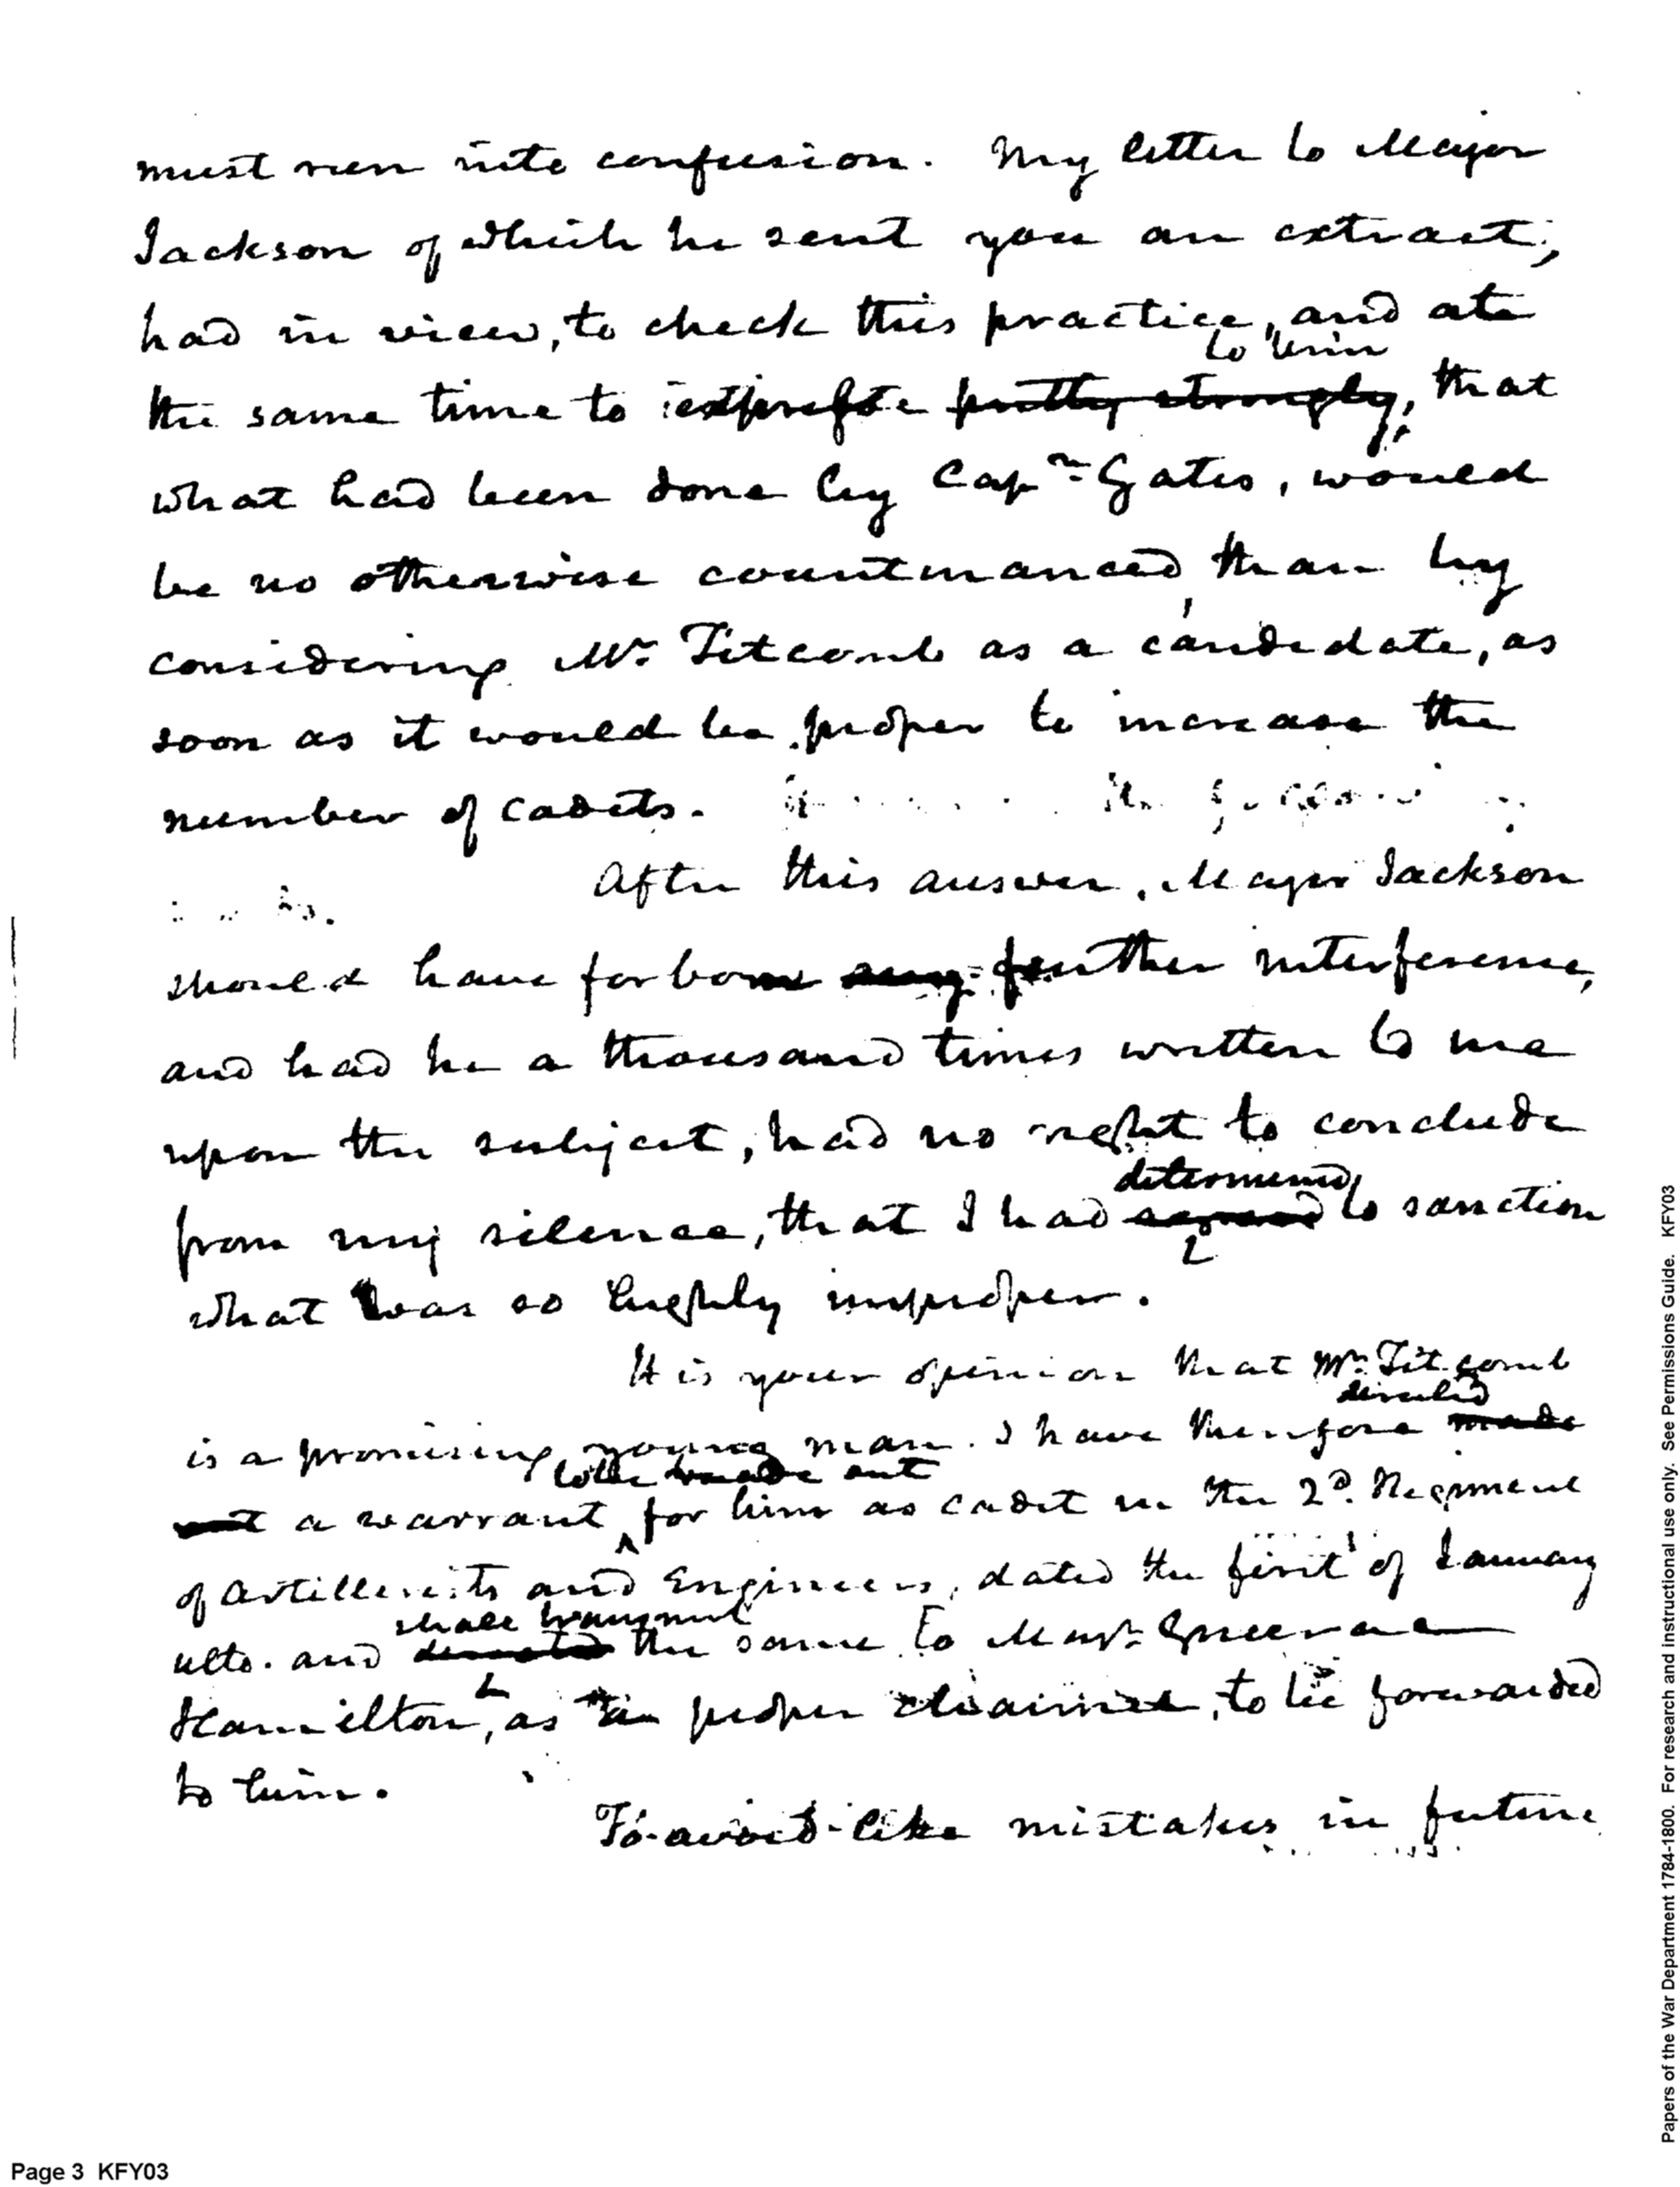 must run into confusion. My letter to Major
Jackson of which he sent you an extract,
had in view, to check this practice, and at
to him
the same time to express pretty strongly, that
what had been done by Capn Gates, would
be no otherwise countinanced than by
considering Mr. Titcomb as a candidate, as
soon as it would be proper to increase the
number of cadets.
After this answer, Major Jackson
should have forborn any further interference,
and had he a thousand times written to me
upon the subject, had no right to conclude
determined
from my silence, that I had agreed to sanction
what was so highly improper.
It is your opinion that Mr. Titcomb
directed
is a promising young man. I have therefore made
to be made out
out a warrant for him as cadet in the 2d. Regiment
of Artillerists and Engineers, dated the first of January
shall transmit
ulto. and directed the same to Majr. General
Hamilton, as the proper channel, to be forwarded
to him.
To avoid like mistakes in future
Page 3 KFY03
Papers of the War Department 1784-1800. For research and instructional use only. See Permissions Guide. KFY03